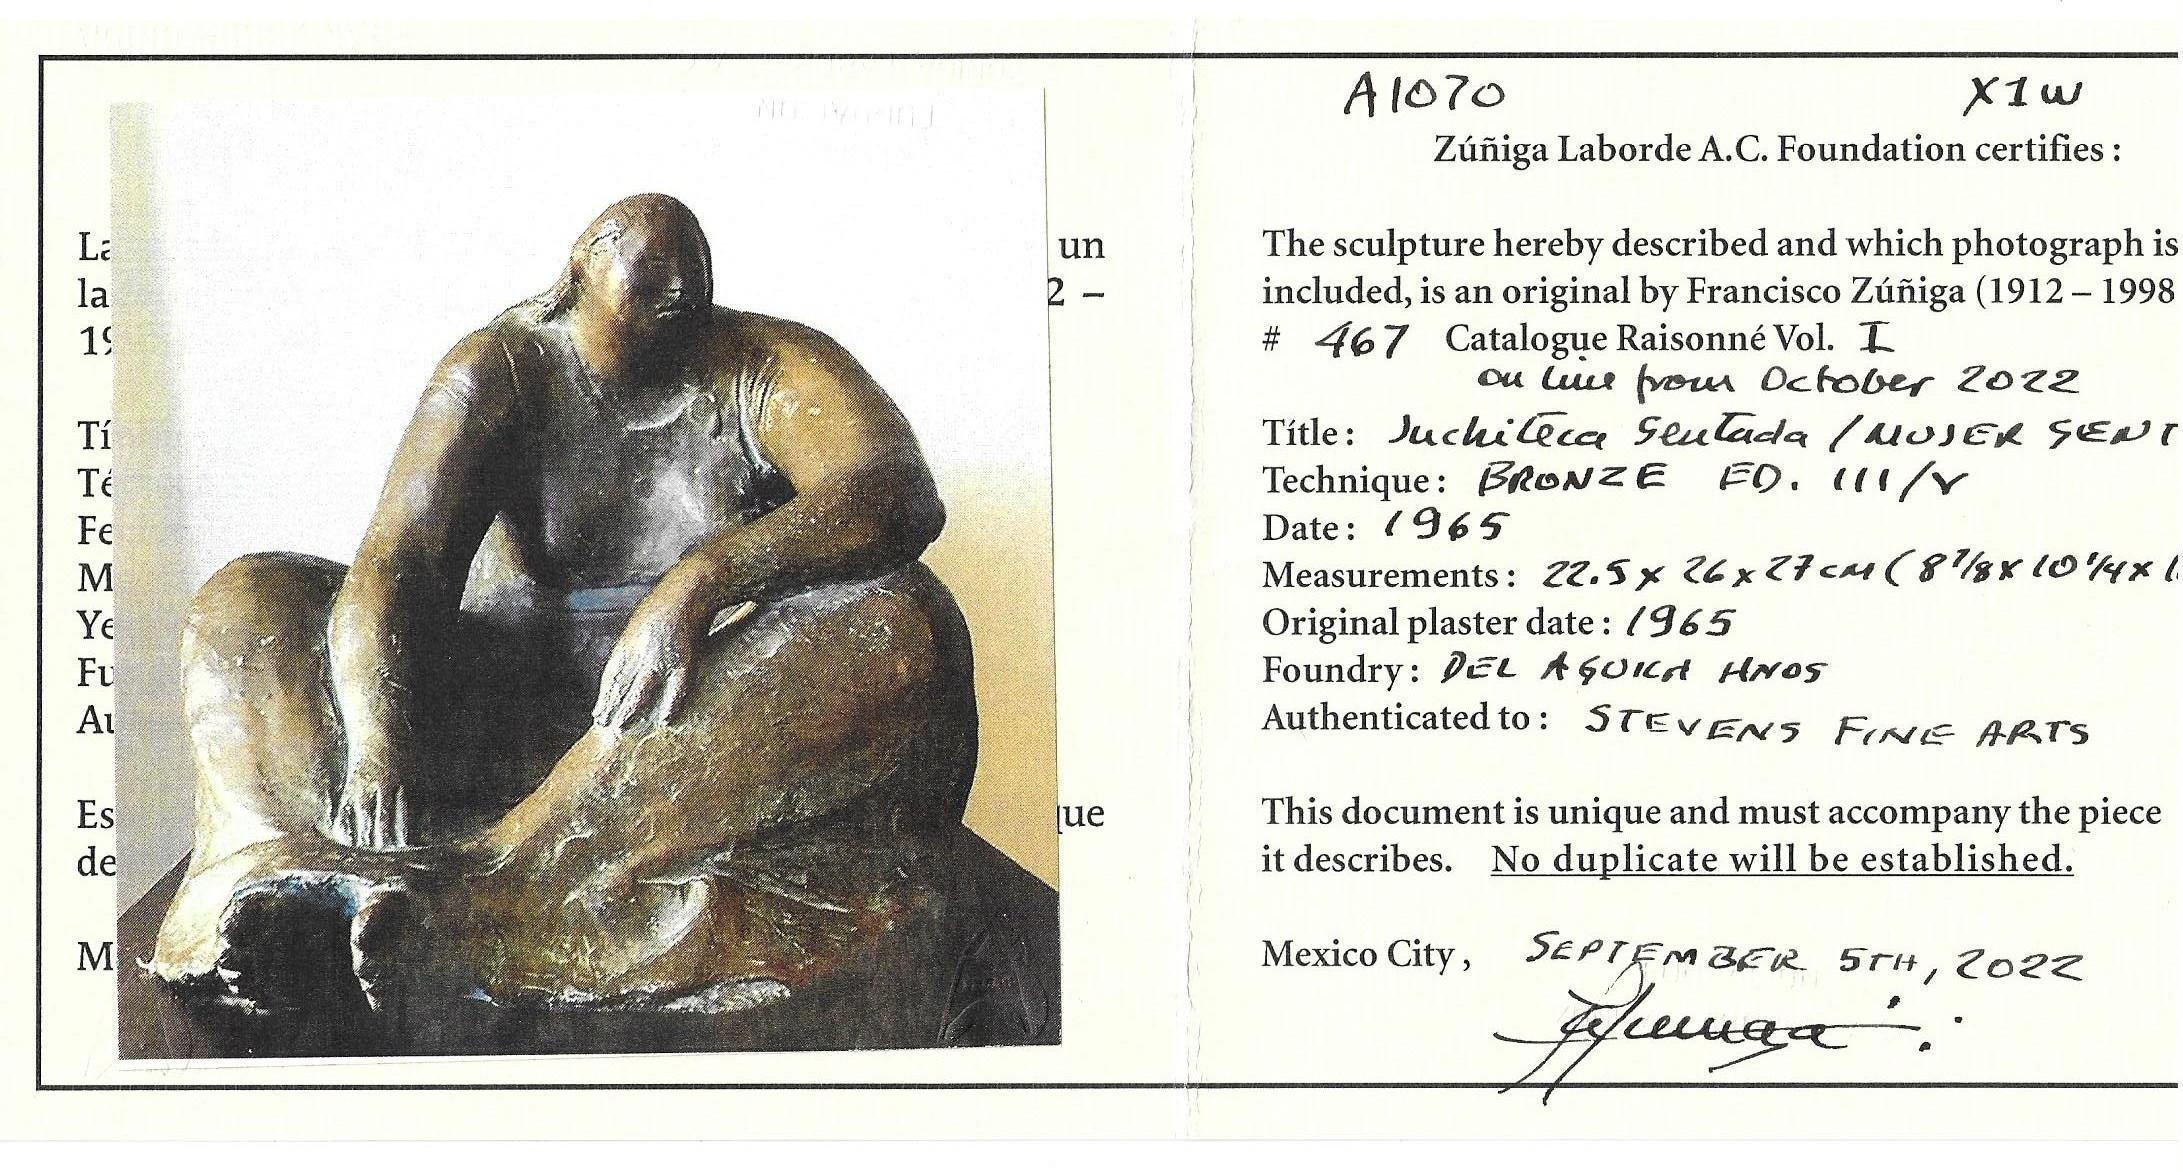 La
un
la
2 –
19
Tí
Té
Fe
M
Ye
Fu
Au
Es
que
de
M
A1070 X1W
Zúñiga Laborde A.C. Foundation certifies :
The sculpture hereby described and which photograph is
included, is an original by Francisco Zúñiga (1912 – 1998
# 467 Catalogue Raisonné Vol. I
on line from October 2022
Title : Juchiteca Sentada / MUJER SENT
Technique : BRONZE ED. III/V
Date : 1965
Measurements : 22.5 x 26 x 27 cm ( 8 7/8 x 10 1/4 x 1
Original plaster date : 1965
Foundry : DEL AGUILA HNOS
Authenticated to : STEVENS FINE ARTS
This document is unique and must accompany the piece
it describes. No duplicate will be established.
Mexico City , SEPTEMBER 5TH, 2022